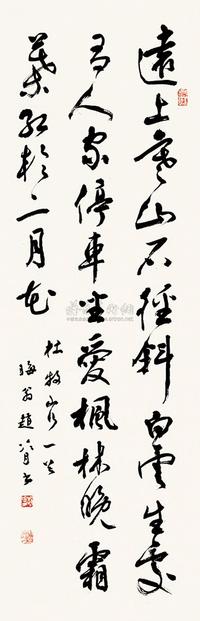 遠上寒山石徑斜白雲生處
有人家停車坐愛楓林晚霜
葉紅於二月花
杜牧山行一首
海翁趙冷月書